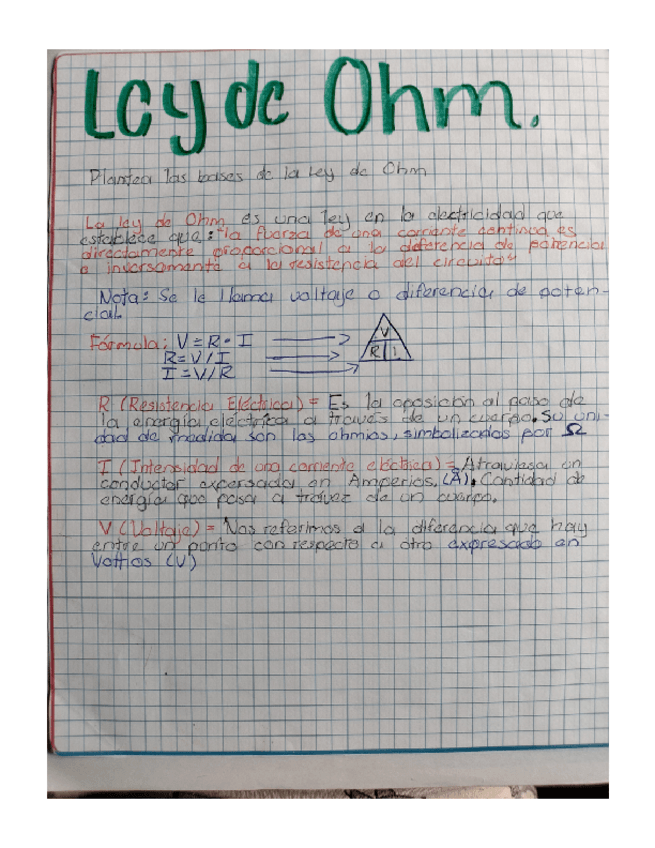 Ley de Ohm.
Plantea las bases de la Ley de Ohm
La ley de Ohm es una ley en la electricidad que
establece que: "la fuerza de una corriente continua es
directamente proporcional a la diferencia de potencial
e inversamente a la resistencia del circuito"
Nota: Se le llama voltaje o diferencia de poten-
cial.
Fórmula: V = R · I
R = V / I
I = V / R
V
R I
R (Resistencia Eléctrica) = Es la oposición al paso de
la energía eléctrica a través de un cuerpo. Su uni-
dad de medida son los ohmios, simbolizados por Ω
I (Intensidad de una corriente eléctrica) = Atraviesa un
conductor expersada en Amperios. (A). Cantidad de
energía que pasa a travez de un cuerpo.
V (Voltaje) = Nos referimos a la diferencia que hay
entre un punto con respecto a otro expresado en
Voltios (V)